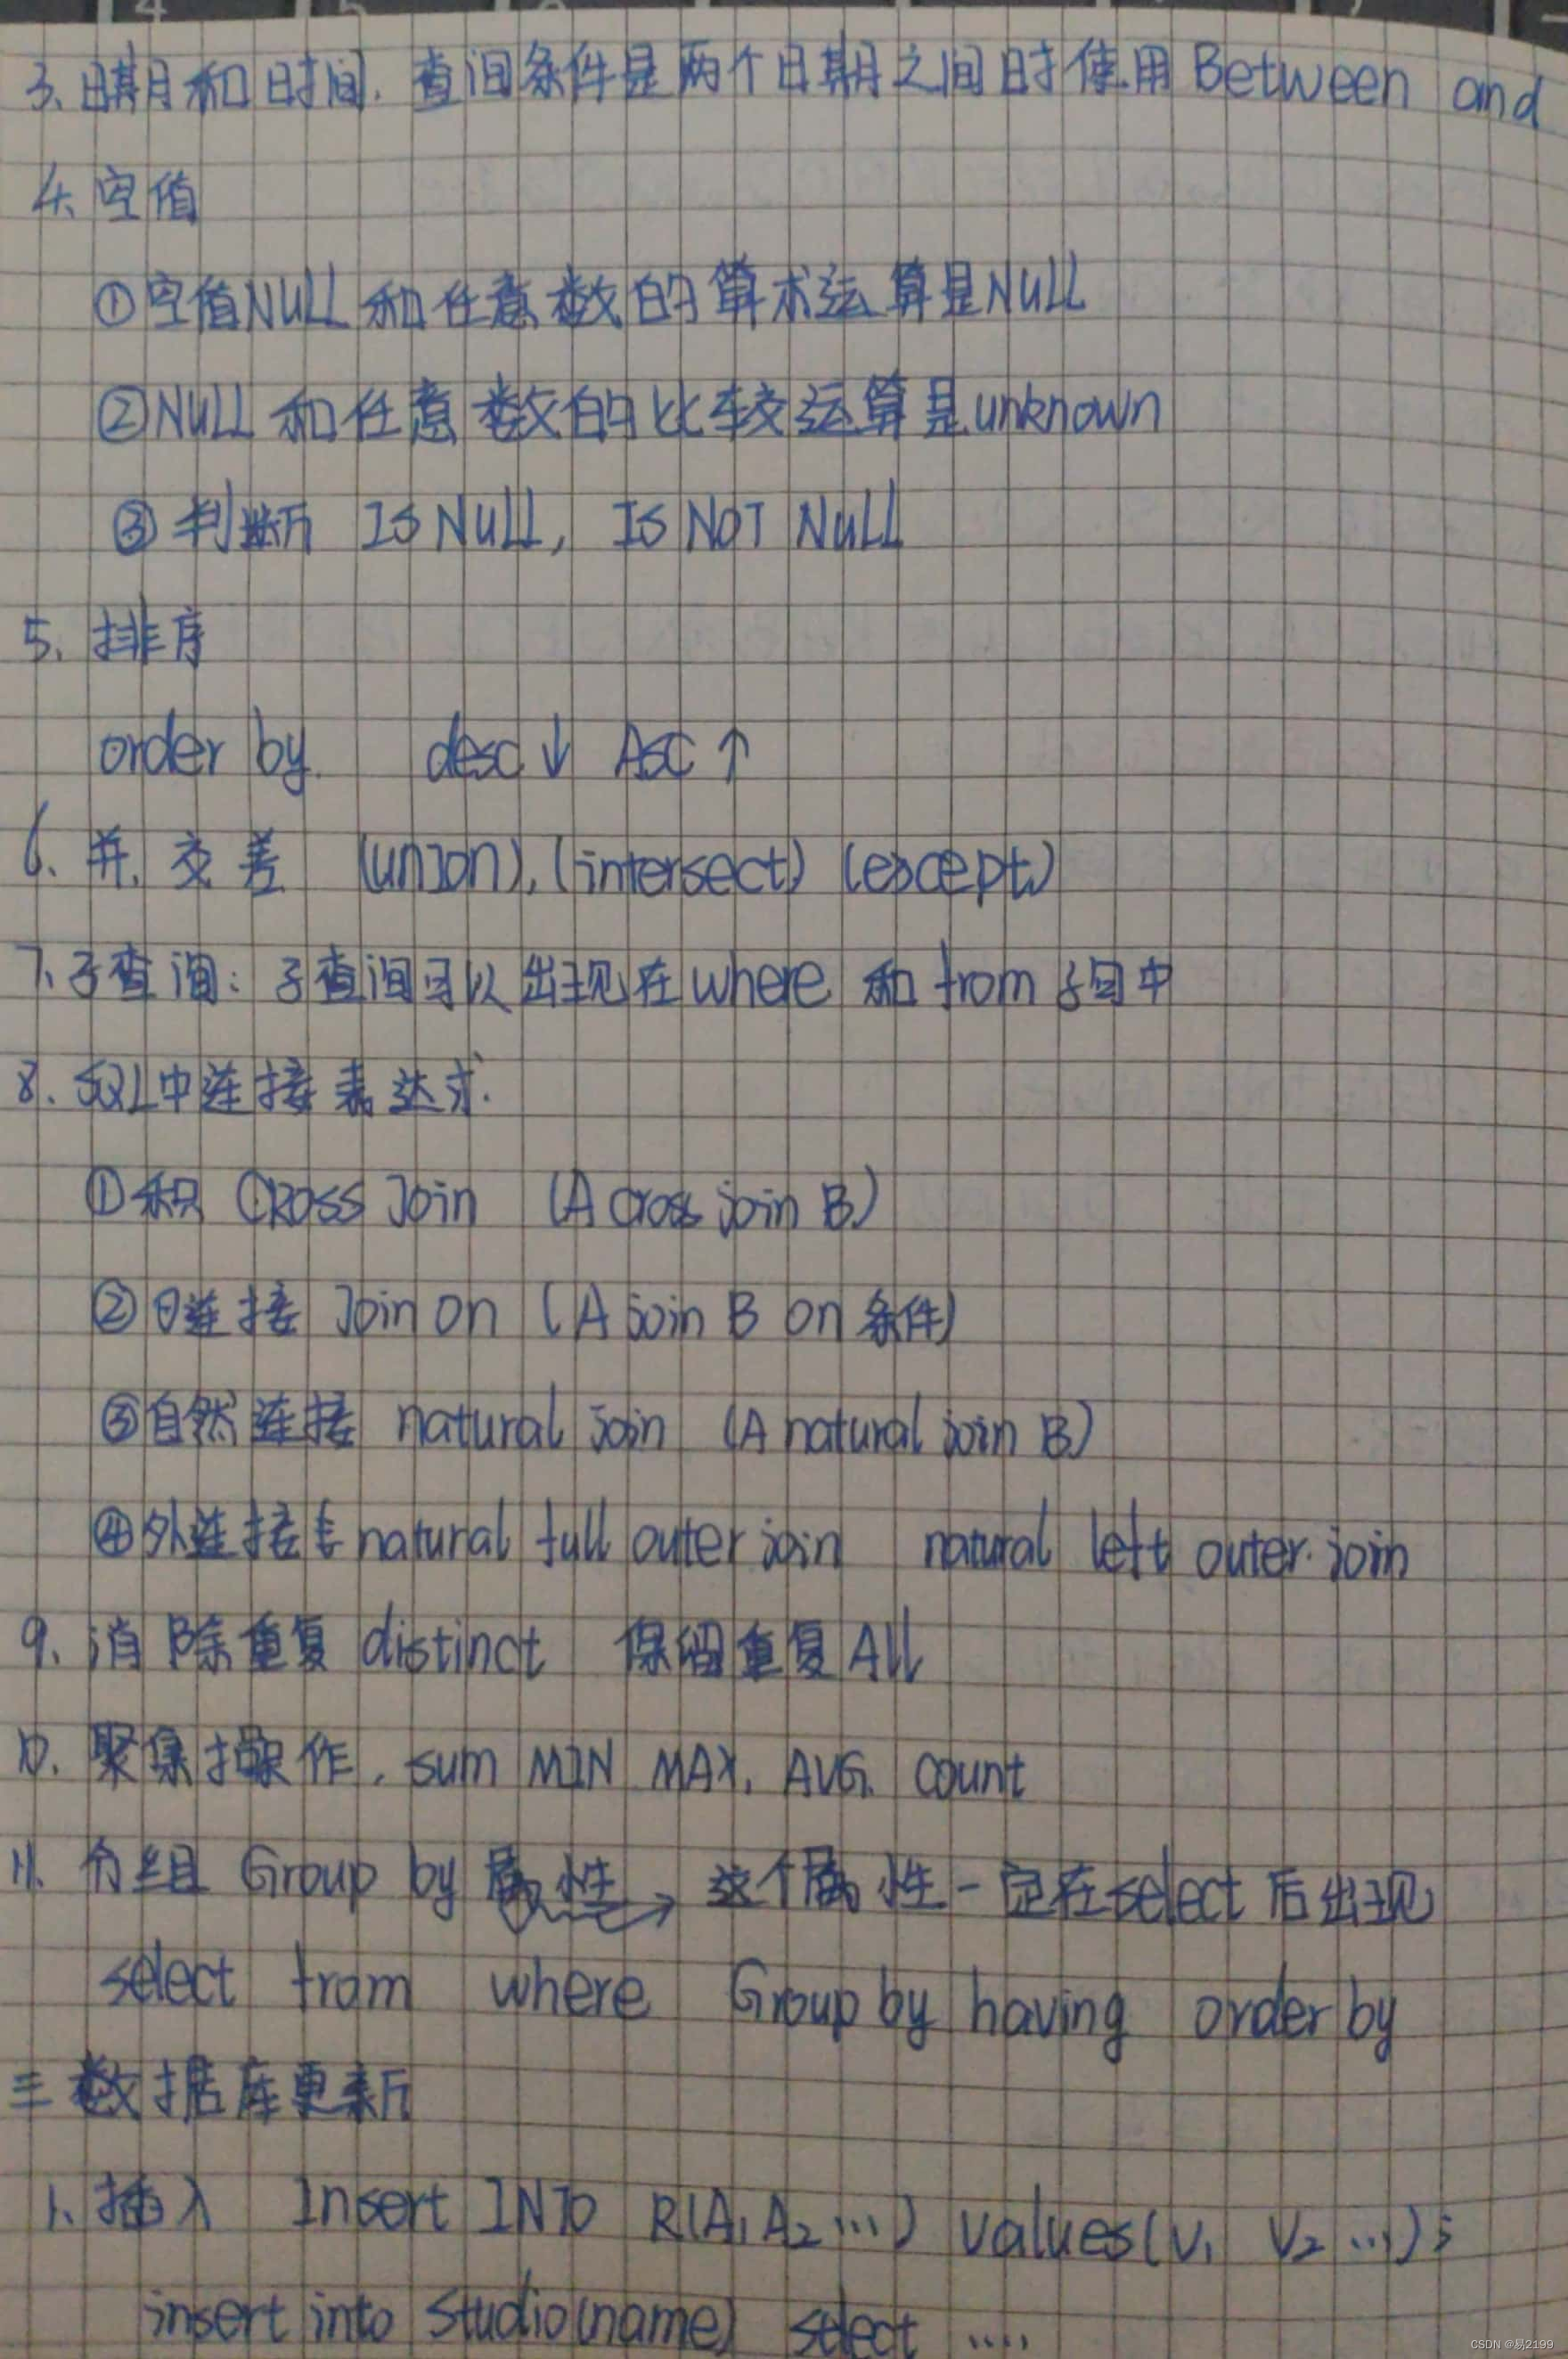 3、日期和时间. 查询条件是两个日期之间时使用Between and
4、空值
①空值NULL和任意数的算术运算是NULL
②NULL和任意数的比较运算是unknown
③判断 IS NULL, IS NOT NULL
5、排序
order by. desc↓ ASC↑
6、并, 交 差 (union), (intersect) (except)
7、子查询: 子查询可以出现在where 和 from 子句中
8. SQL中连接表达式.
①积 CROSS Join (A cross join B)
②θ连接 Join on (A join B on 条件)
③自然连接 natural join (A natural join B)
④外连接 natural full outer join natural left outer join
9、消除重复distinct 保留重复All
10. 聚集操作. sum MIN MAX. AVG. count
11. 分组 Group by 属性→ 这个属性一定在select后出现
select from where Group by having order by
三 数据库更新
1、插入 Insert INTO R(A₁ A₂ ...) values(V₁ V₂ ...);
insert into Studio(name) select ....
CSDN @易2199